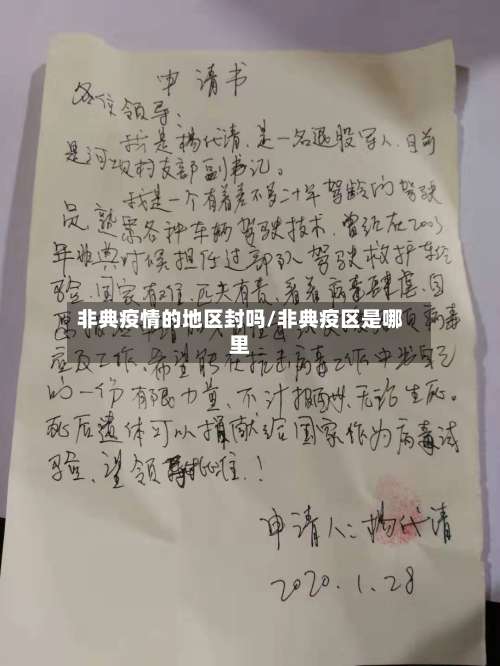 申请书
各位领导:
我是杨代清,是一名退役军人,目前
是河坝村支部副书记。
我是一个有着差不多二十年驾龄的驾驶
员,熟悉各种车辆驾驶技术,曾经在2003
年非典时候担任过部队驾驶救护车经
验,国家有难,匹夫有责,看着病毒肆虐,自
非典疫情的地区封吗/非典疫区是哪
里
病毒
应及工作,希望能在抗击病毒工作中发自己
的一份有限力量,不计报酬,无论生死。
死后遗体可以捐献给国家作为病毒试
验,望领导批准!
申请人:杨代清
2020.1.28